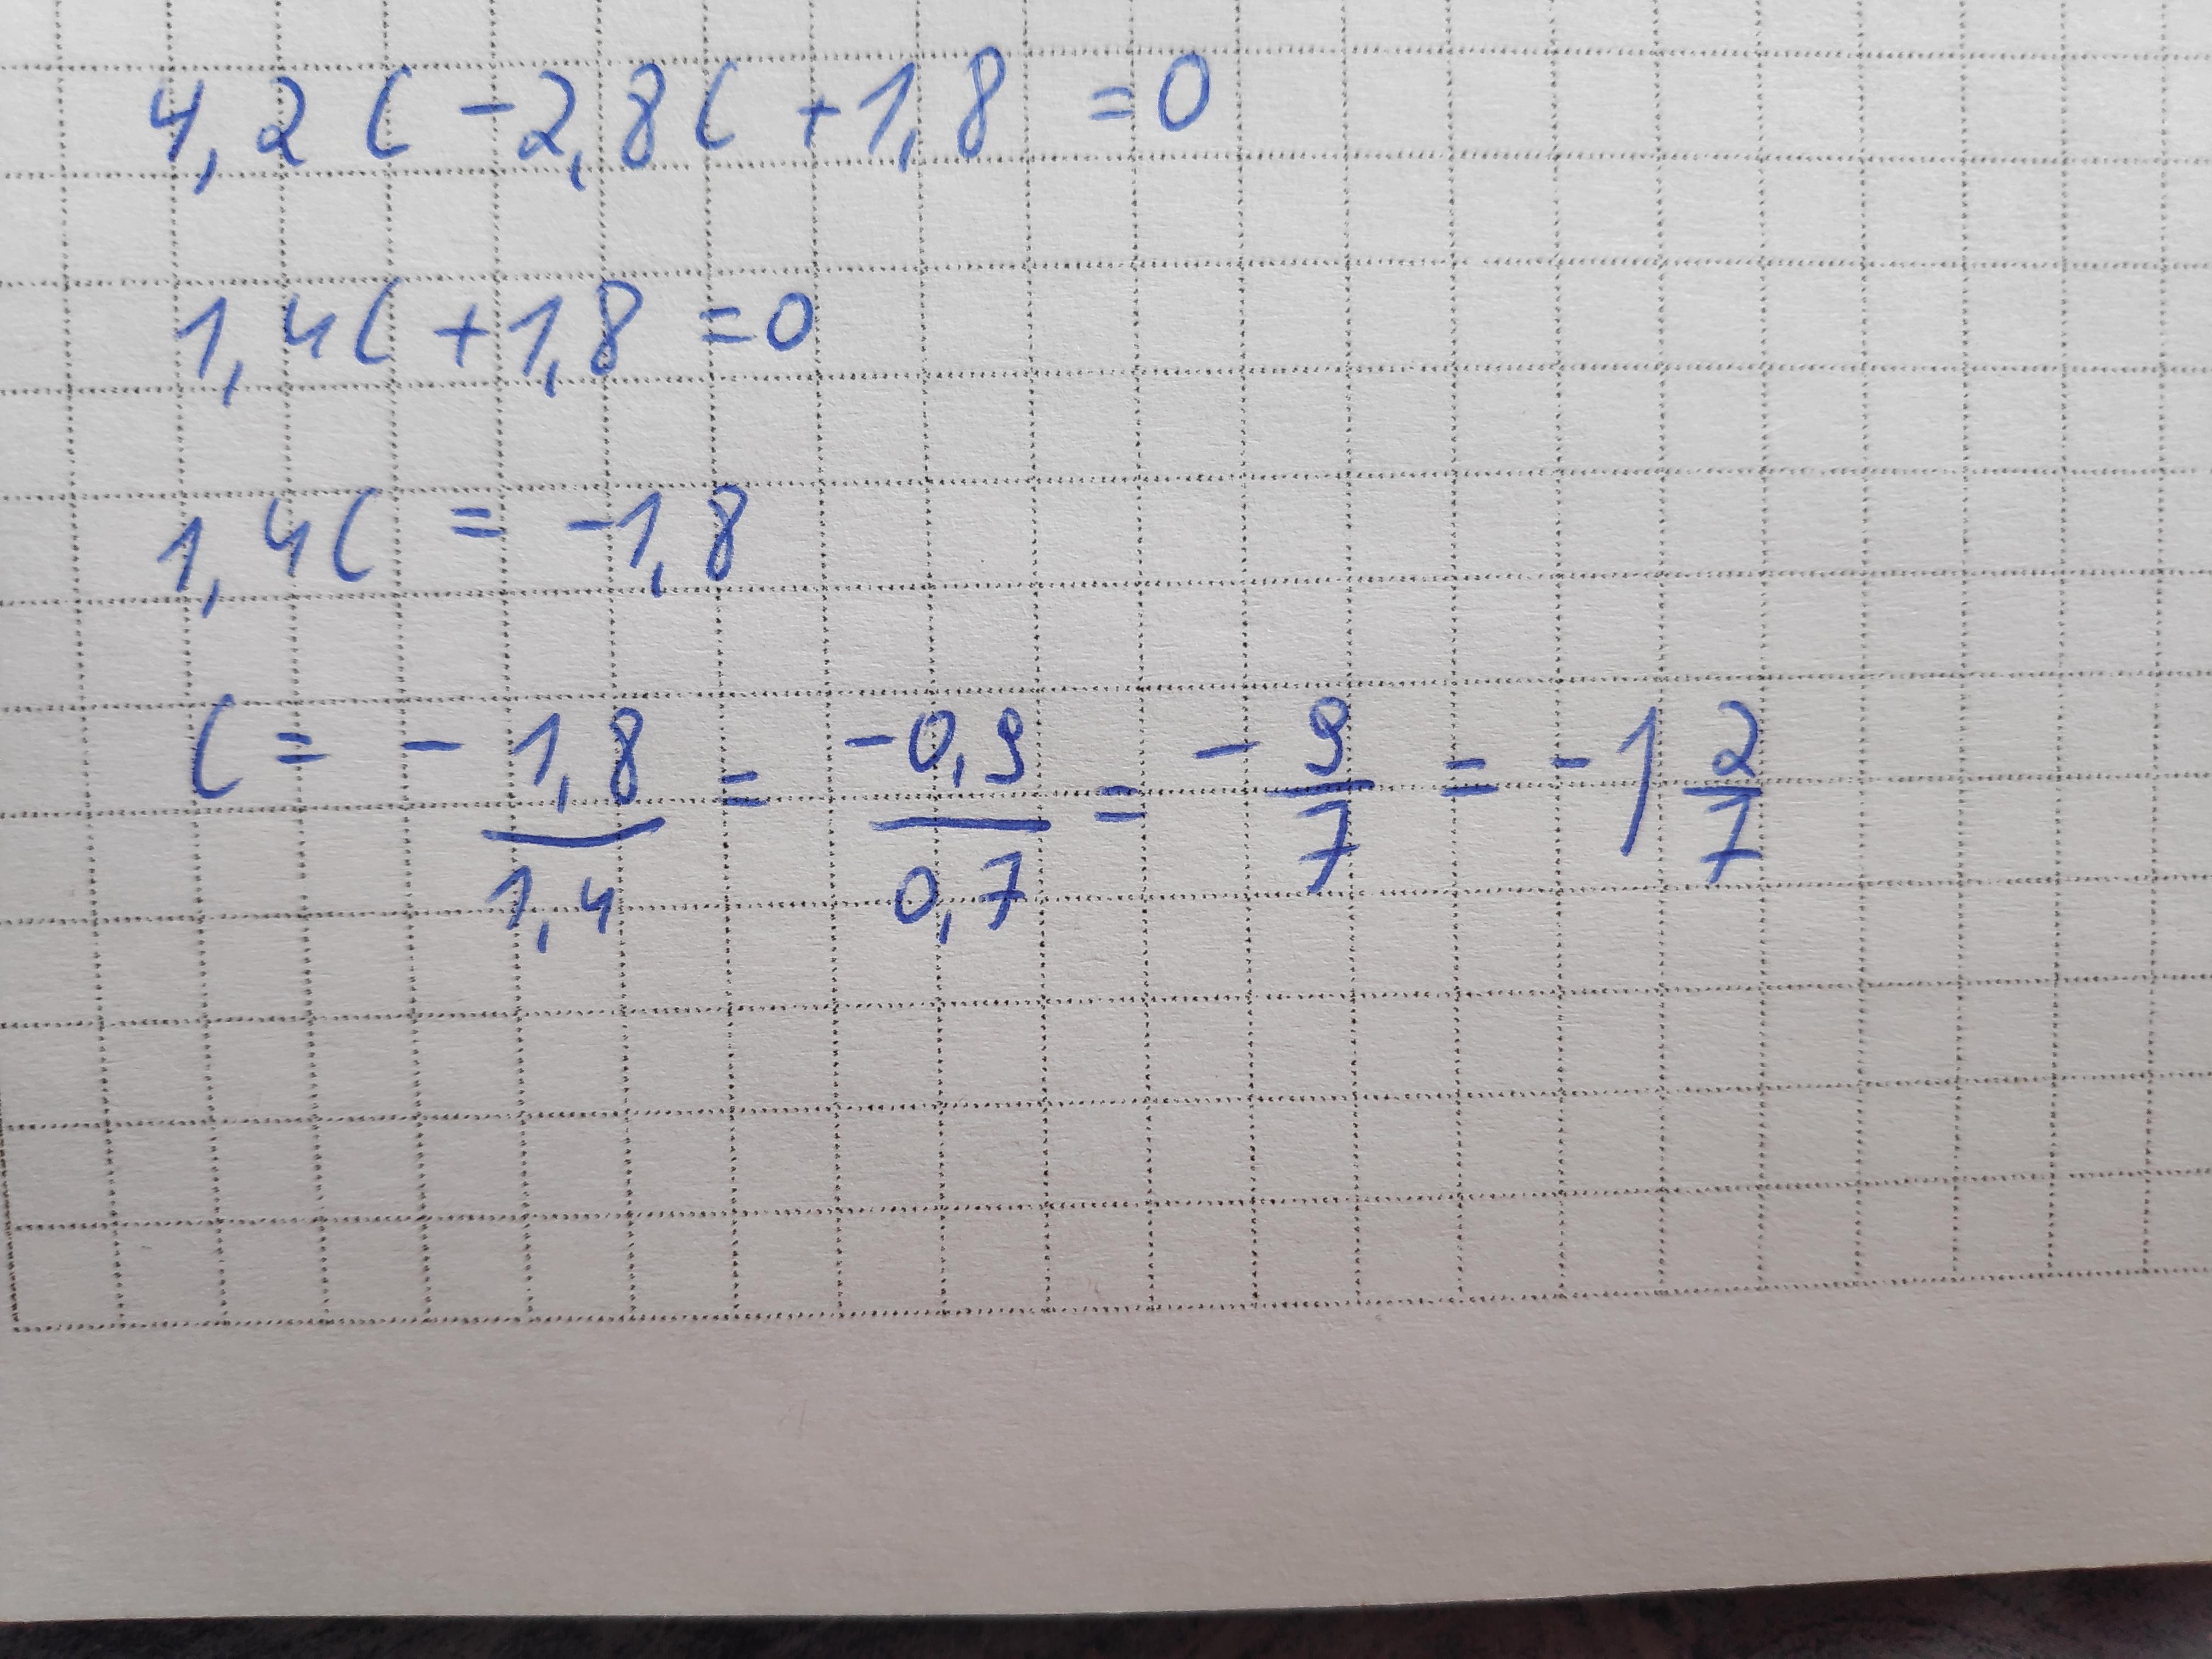 4,2c - 2,8c + 1,8 = 0
1,4c + 1,8 = 0
1,4c = -1,8
c = - 1,8/1,4 = -0,9/0,7 = - 9/7 = -1 2/7